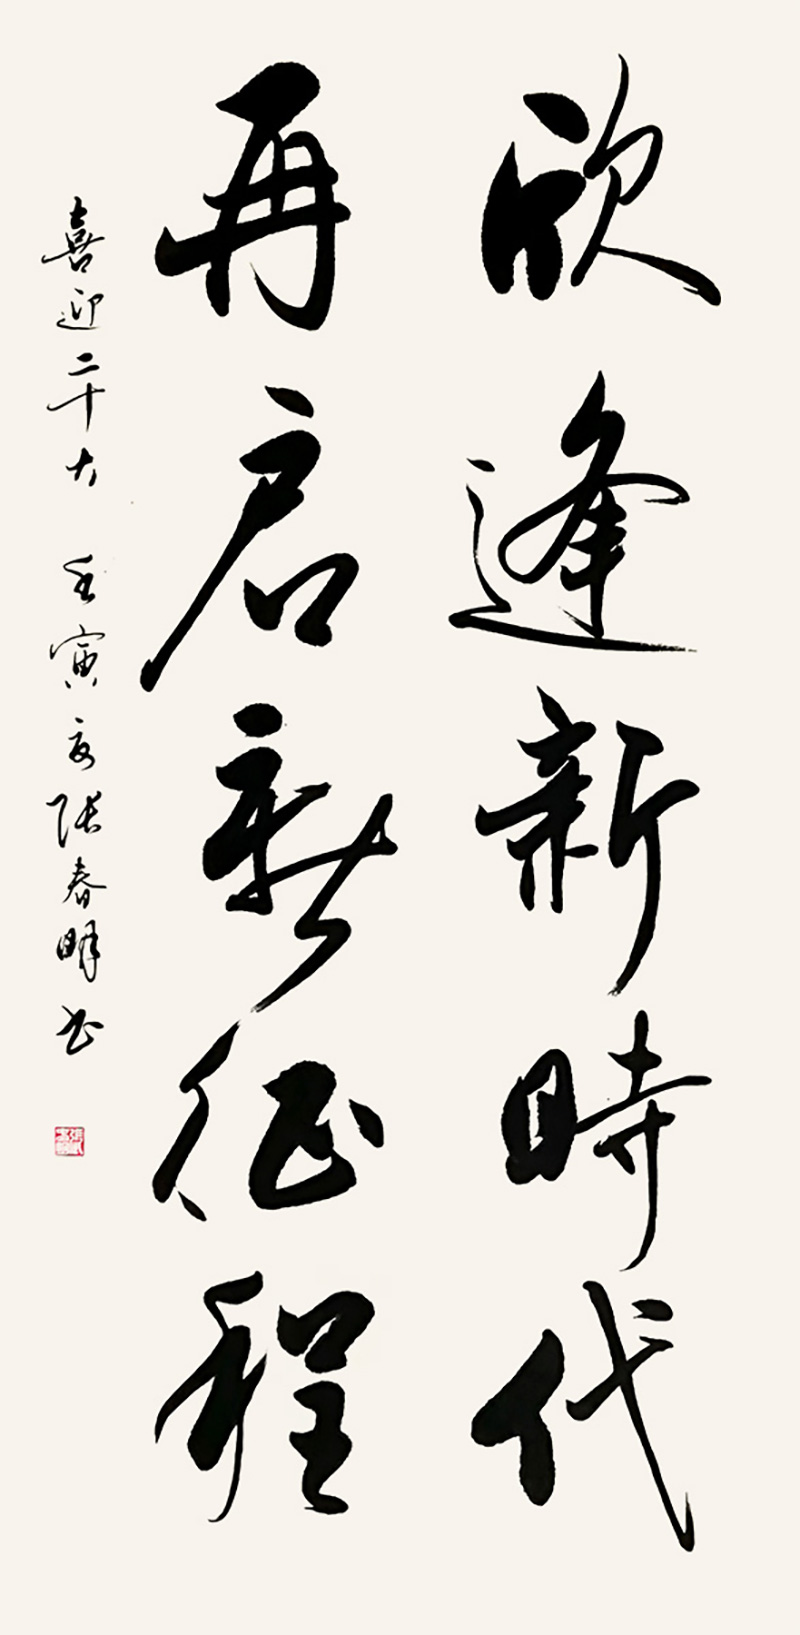 欣逢新時代
再启新征程
喜迎二十大 壬寅夏张春明书